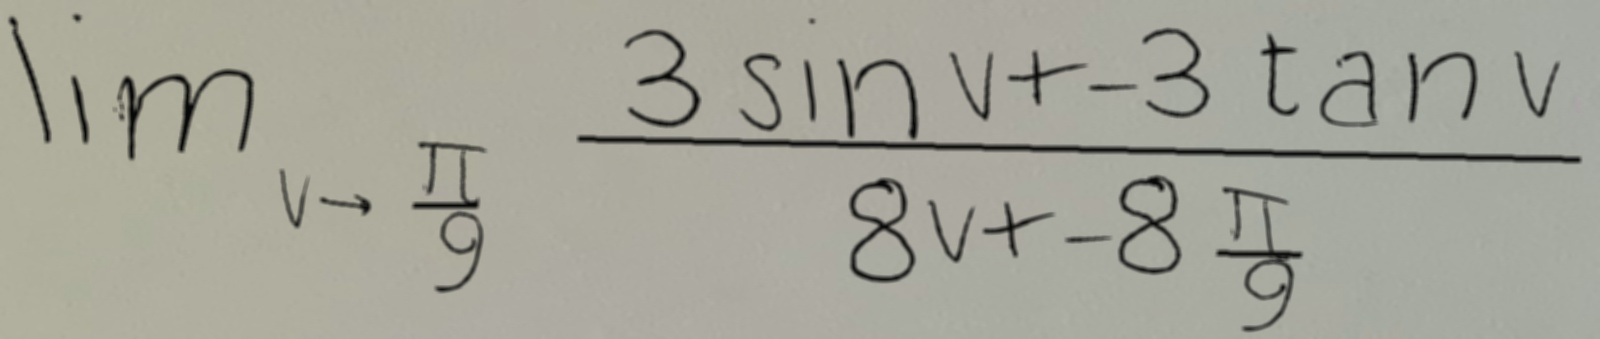 \lim_{v \to \frac{\pi}{9}} \frac{3 \sin v + -3 \tan v}{8v + -8 \frac{\pi}{9}}